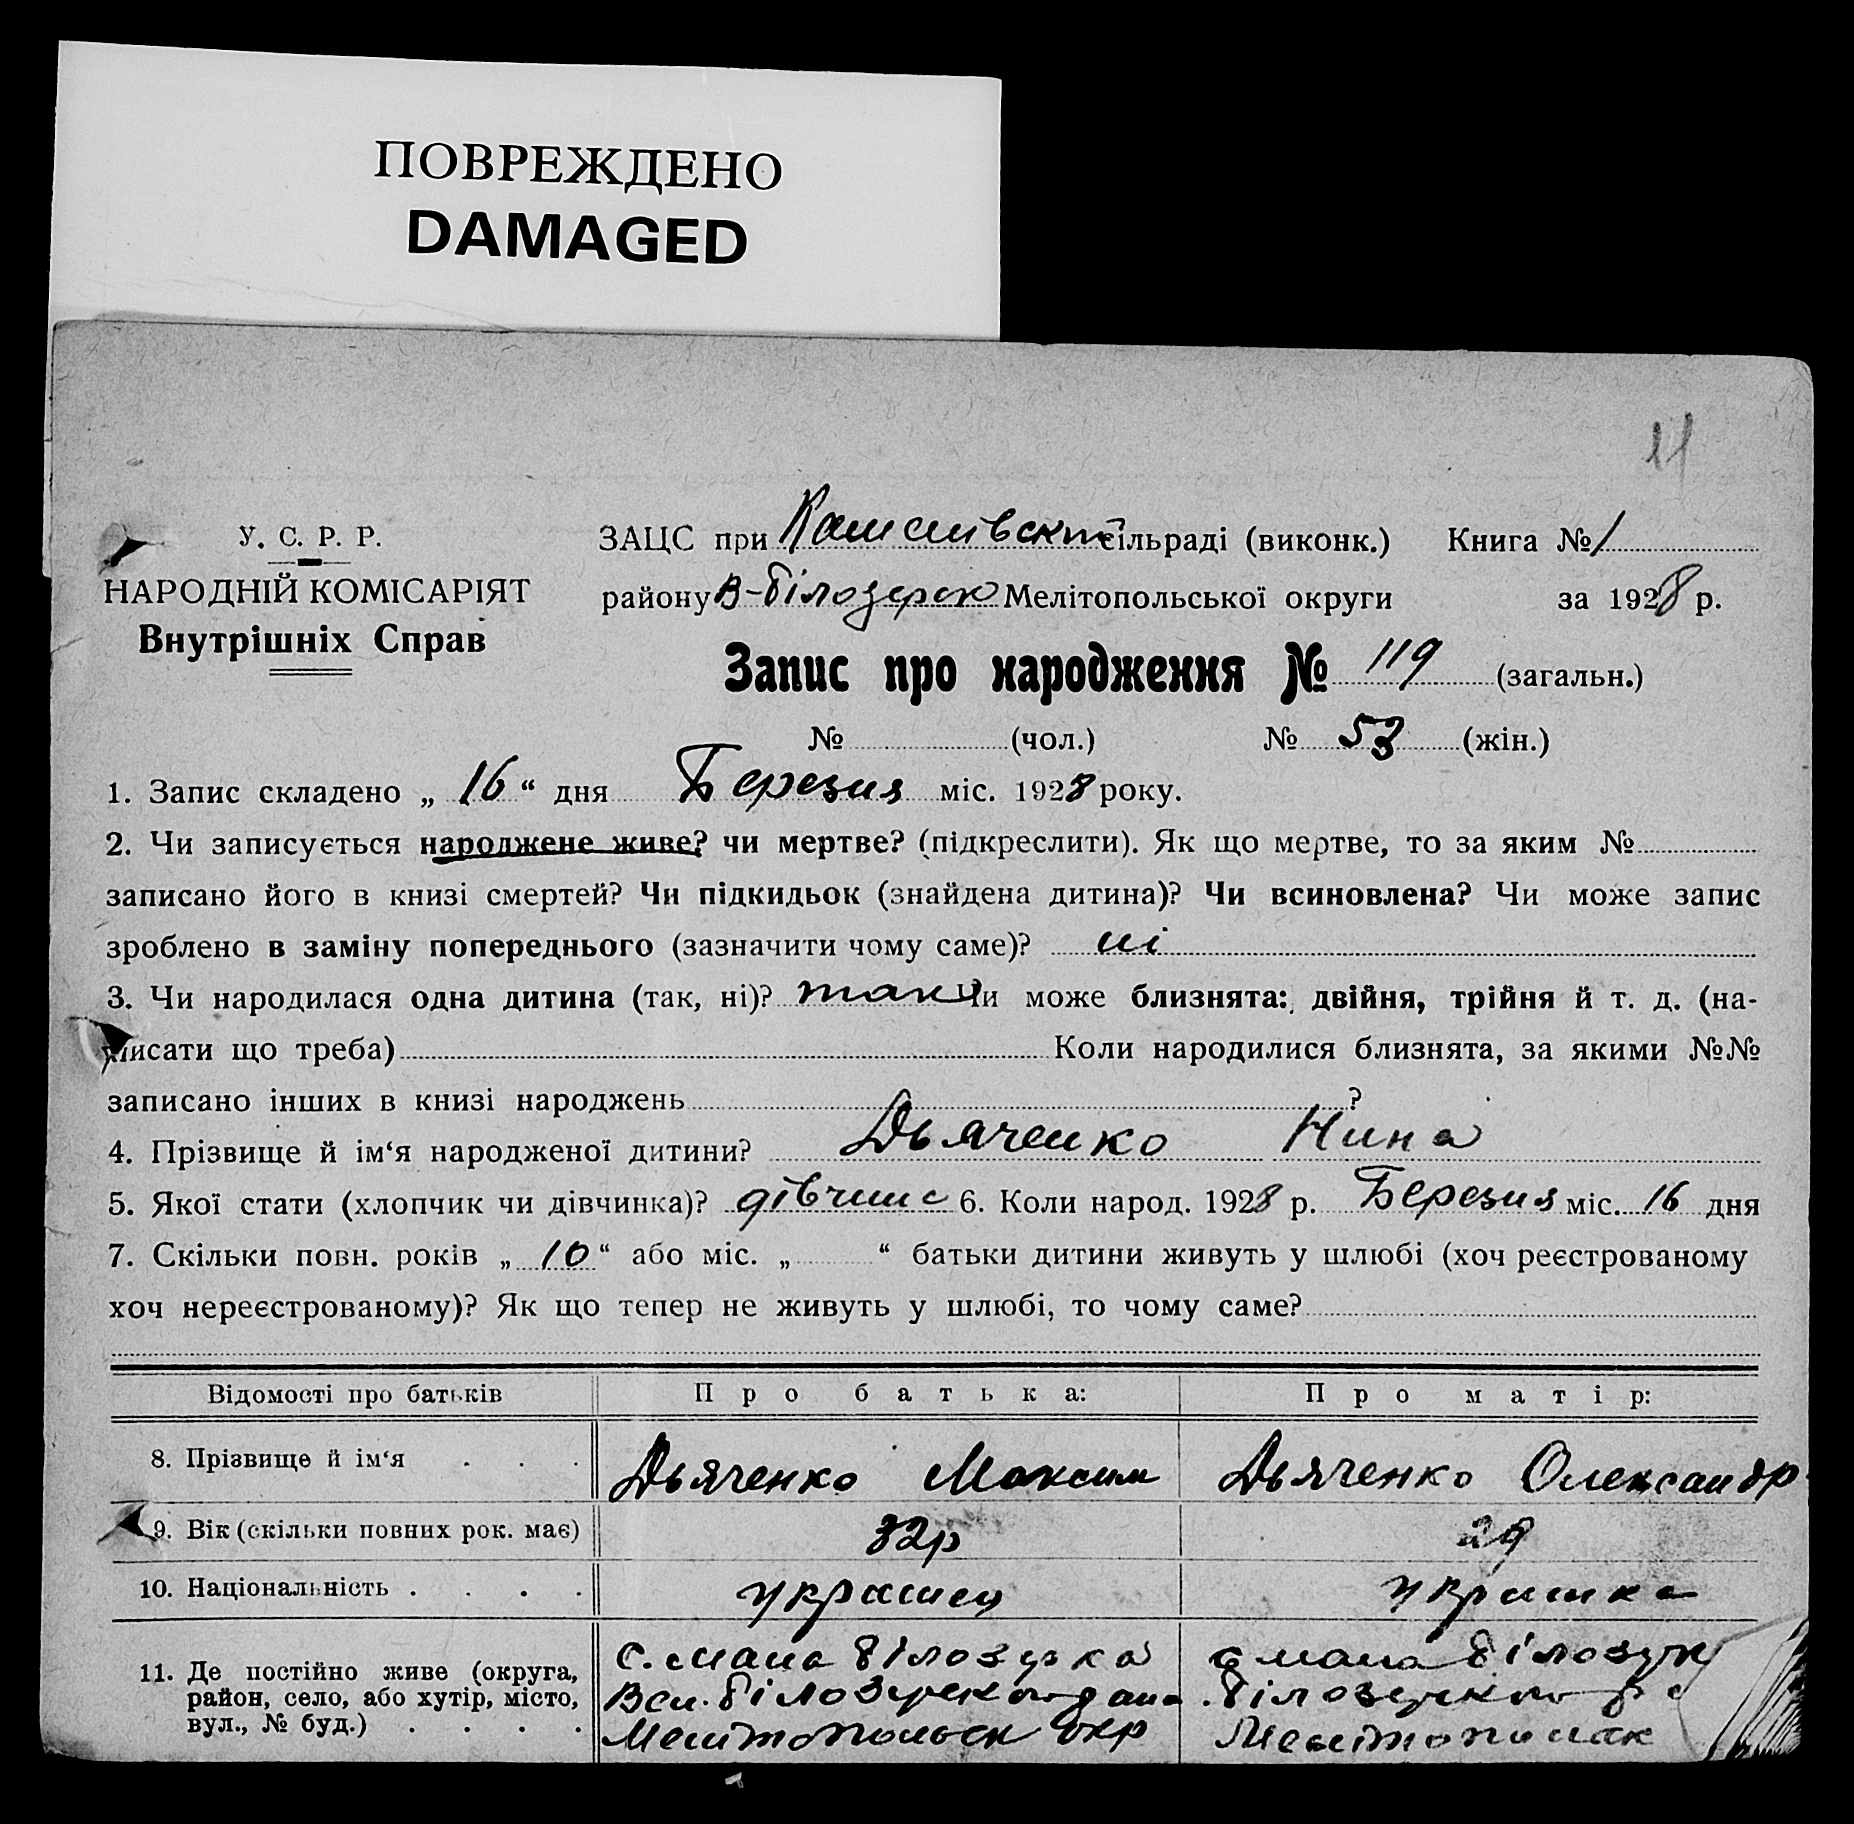 ПОВРЕЖДЕНО
DAMAGED
11
У. С. Р. Р.
НАРОДНІЙ КОМІСАРІЯТ
Внутрішніх Справ
ЗАЦС при сільраді (виконк.) Книга № 1
району В-Білозерск Мелітопольської округи за 1928 р.
Запис про народження № 119 (загальн.)
№ (чол.) № 53 (жін.)
1. Запис складено „ 16 “ дня Березня міс. 1928 року.
2. Чи записується народжене живе? чи мертве? (підкреслити). Як що мертве, то за яким №
записано його в книзі смертей? Чи підкидьок (знайдена дитина)? Чи всиновлена? Чи може запис
зроблено в заміну попереднього (зазначити чому саме)? ні
3. Чи народилася одна дитина (так, ні)? так Чи може близнята: двійня, трійня й т. д. (на-
писати що треба) Коли народилися близнята, за якими №№
записано інших в книзі народжень ?
4. Прізвище й ім‘я народженої дитини? Дьяченко Нина
5. Якої стати (хлопчик чи дівчинка)? дівчина 6. Коли народ. 1928 р. Березня міс. 16 дня
7. Скільки повн. років „ 10 “ або міс. „ “ батьки дитини живуть у шлюбі (хоч реєстрованому
хоч нереєстрованому)? Як що тепер не живуть у шлюбі, то чому саме?
Відомості про батьків Про батька: Про матір:
8. Прізвище й ім‘я . . . Дьяченко Максим Дьяченко Олександр
9. Вік (скільки повних рок. має) 32р 29
10. Національність . . . . украинец украинка
11. Де постійно живе (округа, район, село, або хутір, місто, вул., № буд.) . . . .
с. мала білозерка
Вел. білозерск
Мелитопольск окр
с мала білозерк
білозерк